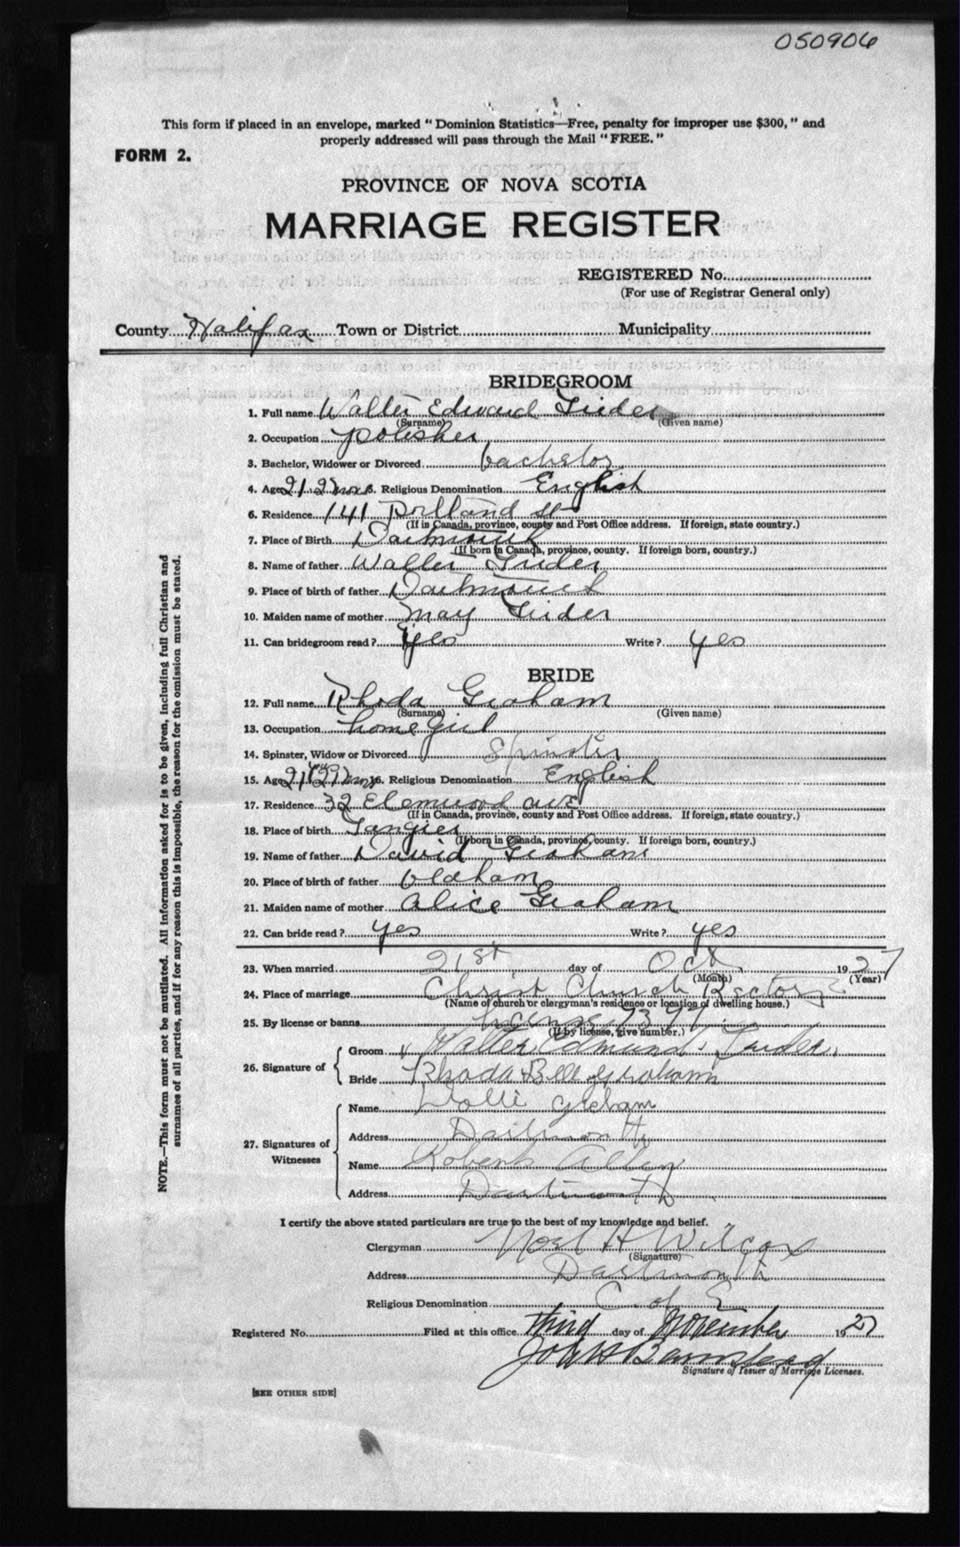 050906
This form if placed in an envelope, marked "Dominion Statistics—Free, penalty for improper use $300," and
properly addressed will pass through the Mail "FREE."
FORM 2.
PROVINCE OF NOVA SCOTIA
MARRIAGE REGISTER
REGISTERED No.
(For use of Registrar General only)
County Halifax Town or District Municipality
BRIDEGROOM
1. Full name Walter Edward
(Surname) (Given name)
2. Occupation polisher
3. Bachelor, Widower or Divorced bachelor
4. Age 21 2 mos 5. Religious Denomination English
6. Residence 141 Portland St
(If in Canada, province, county and Post Office address. If foreign, state country.)
7. Place of Birth Dartmouth
(If born in Canada, province, county. If foreign born, country.)
8. Name of father Walter
9. Place of birth of father Dartmouth
10. Maiden name of mother May
11. Can bridegroom read? yes Write? yes
BRIDE
12. Full name Rhoda Graham
(Surname) (Given name)
13. Occupation home girl
14. Spinster, Widow or Divorced Spinster
15. Age 21 16. Religious Denomination English
17. Residence 32 Elemwood ave
(If in Canada, province, county and Post Office address. If foreign, state country.)
18. Place of birth Tangier
(If born in Canada, province, county. If foreign born, country.)
19. Name of father David Graham
20. Place of birth of father Oldham
21. Maiden name of mother Alice Graham
22. Can bride read? yes Write? yes
23. When married 21st day of Oct 1927
(Month) (Year)
24. Place of marriage Christ Church Rectory
(Name of church or clergyman's residence or location of dwelling house.)
25. By license or banns license
(If by license, give number.)
26. Signature of
Groom Walter Edmund
Bride Rhoda Bell Graham
27. Signatures of
Witnesses
Name Graham
Address Dartmouth
Name Robert Allen
Address Dartmouth
I certify the above stated particulars are true to the best of my knowledge and belief.
Clergyman Noel H Wilcox
(Signature)
Address Dartmouth
Religious Denomination C. of E
Registered No. Filed at this office third day of November 1927
Signature of Issuer of Marriage Licenses.
[SEE OTHER SIDE]
NOTE.—This form must not be mutilated. All information asked for is to be given, including full Christian and
surnames of all parties, and if for any reason this is impossible, the reason for the omission must be stated.